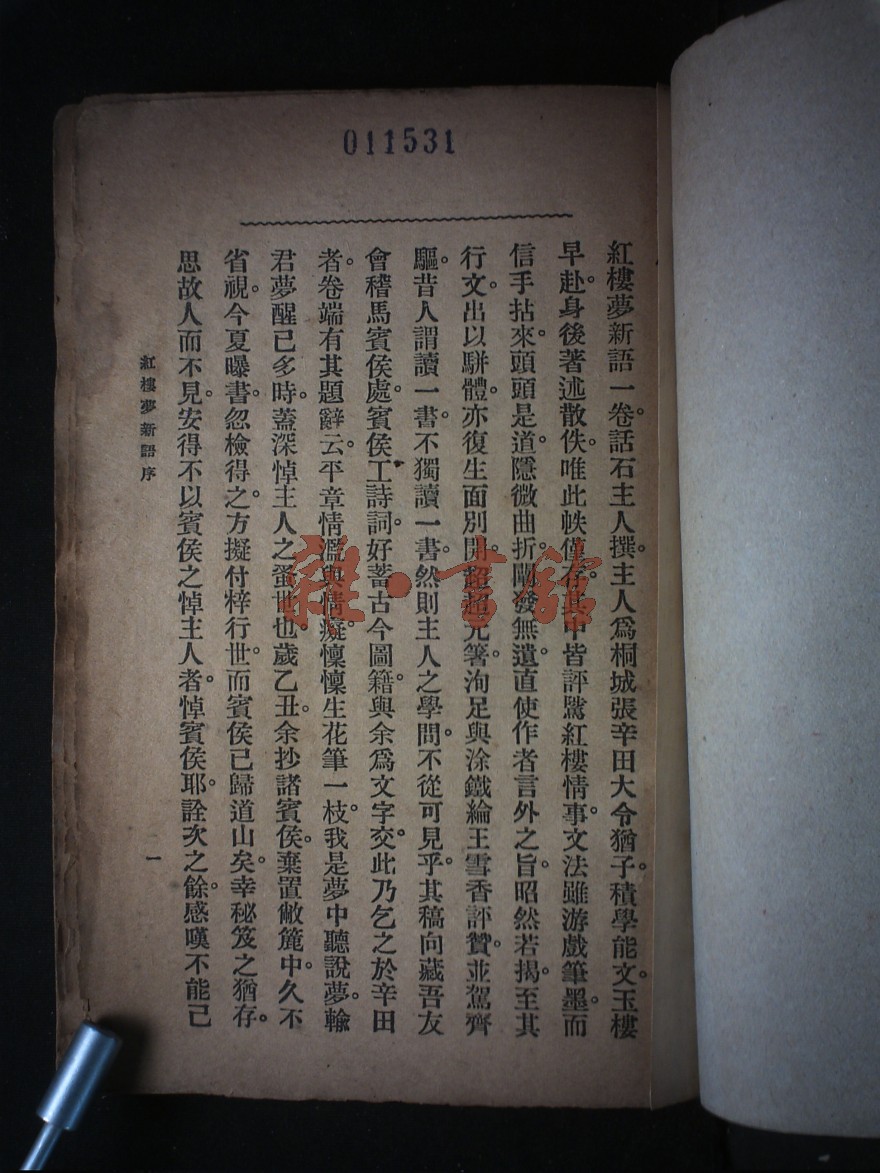 011531
紅樓夢新語一卷。話石主人撰。主人爲桐城張辛田大令猶子。積學能文。玉樓
早赴。身後著述散佚。唯此帙僅存。其中皆評騭紅樓情事。文法雖游戲筆墨。而
信手拈來。頭頭是道。隱微曲折。闡發無遺。直使作者言外之旨。昭然若揭。至其
行文。出以駢體。亦復生面別開。超超元箸。洵足與涂鐵綸王雪香評贊。並駕齊
驅。昔人謂讀一書。不獨讀一書。然則主人之學問。不從可見乎。其稿向藏吾友
會稽馬賓侯處。賓侯工詩詞。好蓄古今圖籍。與余爲文字交。此乃乞之於辛田
者。卷端有其題辭云。平章情濫與情癡。懍懍生花筆一枝。我是夢中聽說夢。輸
君夢醒已多時。蓋深悼主人之蛋世也。歲乙丑。余抄諸賓侯。棄置敝簏中。久不
省視。今夏曝書。忽檢得之。方擬付梓行世。而賓侯已歸道山矣。幸秘笈之猶存。
思故人而不見。安得不以賓侯之悼主人者。悼賓侯耶。詮次之餘。感嘆不能已
紅樓夢新語序
一
雜·書館